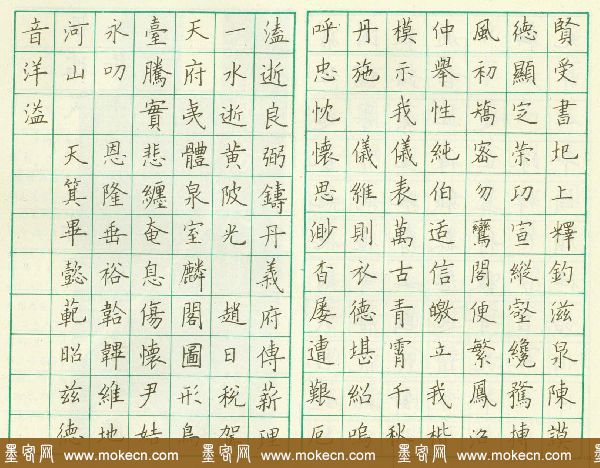 賢受書圯上釋釣滋泉陳
德顯定榮功宣縱壑纔
風初矯容勿鸞閣便繁鳳
仲舉性純伯适信皦立我
模示我儀表萬古青霄千秋
丹施儀維則衣德堪紹嗚
呼忠忱懷思渺杳屡遭艱
溘逝良弼鑄丹義府傳薪理
一水逝黄陂光趙日税駕
天府夷體泉室麟閣圖形
臺騰實悲纏奄息傷懷尹姞
永叨恩隆垂裕韐韠維地
河山天箕畢懿範昭兹德
音洋溢
墨客网 www.mokecn.com 墨客网 www.mokecn.com 墨客网 www.mokecn.com